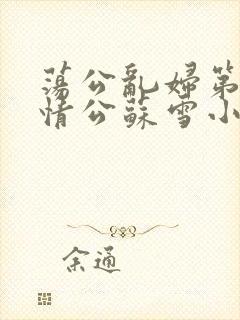 蕩公亂婦第
情公蘇雪小
余通